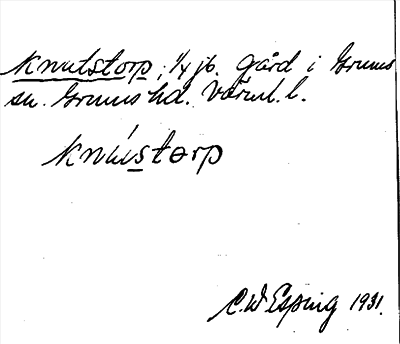 Knutstorp, 1/4 jb. gård i Grums
sn. Grums hd. Värml. l.
Knústorp
C. W Esping 1931.